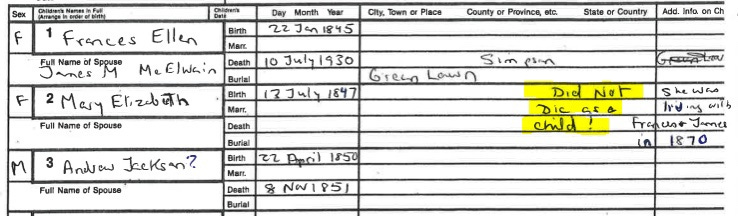 Sex Children's Names in Full (Arrange in order of birth) Children's Data Day Month Year City, Town or Place County or Province, etc. State or Country Add. info. on Ch
F 1 Frances Ellen Birth 22 Jan 1845
Marr.
Full Name of Spouse Death 10 July 1930 Simpson
James M McElwain Burial Green Lawn
F 2 Mary Elizabeth Birth 13 July 1847 Did Not She was
Marr. Die as a living with
Full Name of Spouse Death child! Frances + James
Burial in 1870
M 3 Andrew Jackson? Birth 22 April 1850
Marr.
Full Name of Spouse Death 8 Nov 1851
Burial